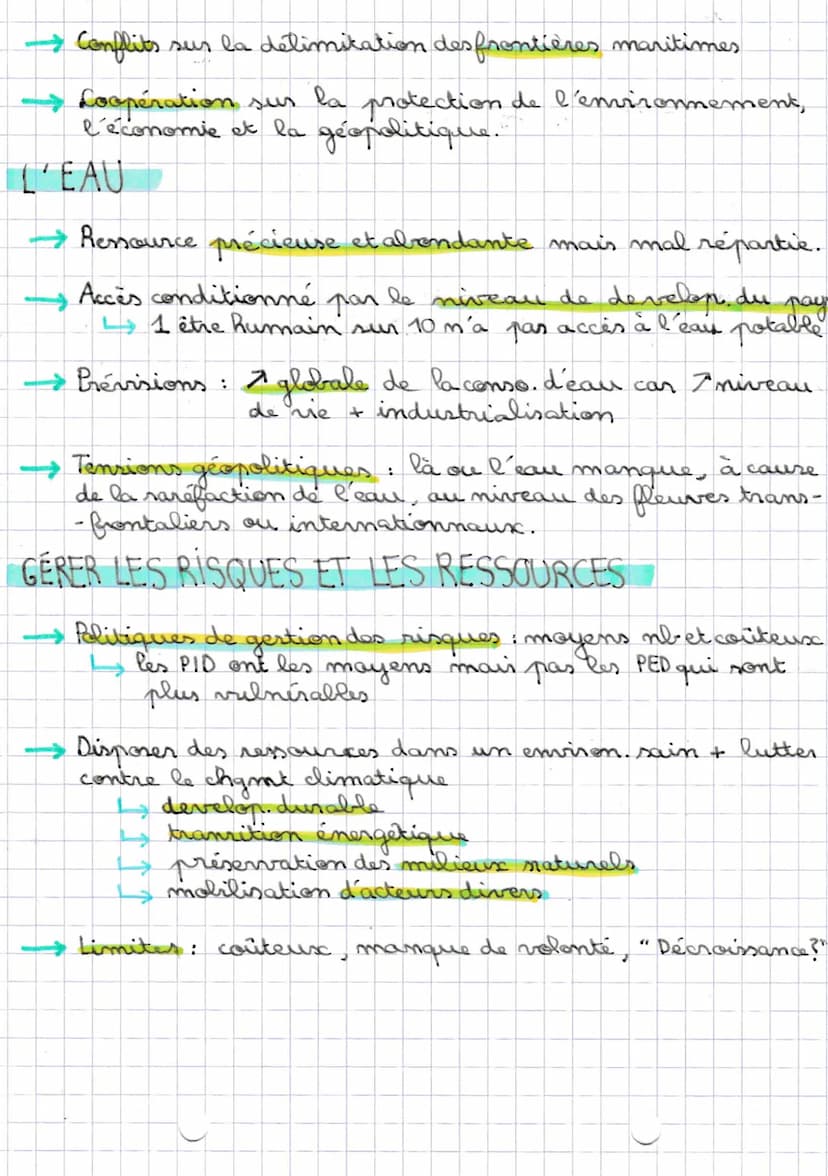 → Conflits sur la délimitation des frontières maritimes
→ Coopération sur la protection de l'environnement,
l'économie et la géopolitique.
L'EAU
→ Ressource précieuse et abondante mais mal répartie.
→ Accès conditionné par le niveau de develop. du pay
↳ 1 être humain sur 10 n'a pas accès à l'eau potable
→ Prévisions : ↗ globale de la conso. d'eau car ↗ niveau
de vie + industrialisation
→ Tensions géopolitiques : là ou l'eau manque, à cause
de la raréfaction de l'eau, au niveau des fleuves trans-
-frontaliers ou internationnaux.
GÉRER LES RISQUES ET LES RESSOURCES
→ Politiques de gestion des risques : moyens nb et coûteux
↳ les PID ont les moyens mais pas les PED qui sont
plus vulnérables
→ Disposer des ressources dans un environ. sain + lutter
contre le chgmt climatique
↳ develop. durable
↳ transition énergétique
↳ préservation des milieux naturels
↳ mobilisation d'acteurs divers
→ Limites : coûteux, manque de volonté, "Décroissance?"